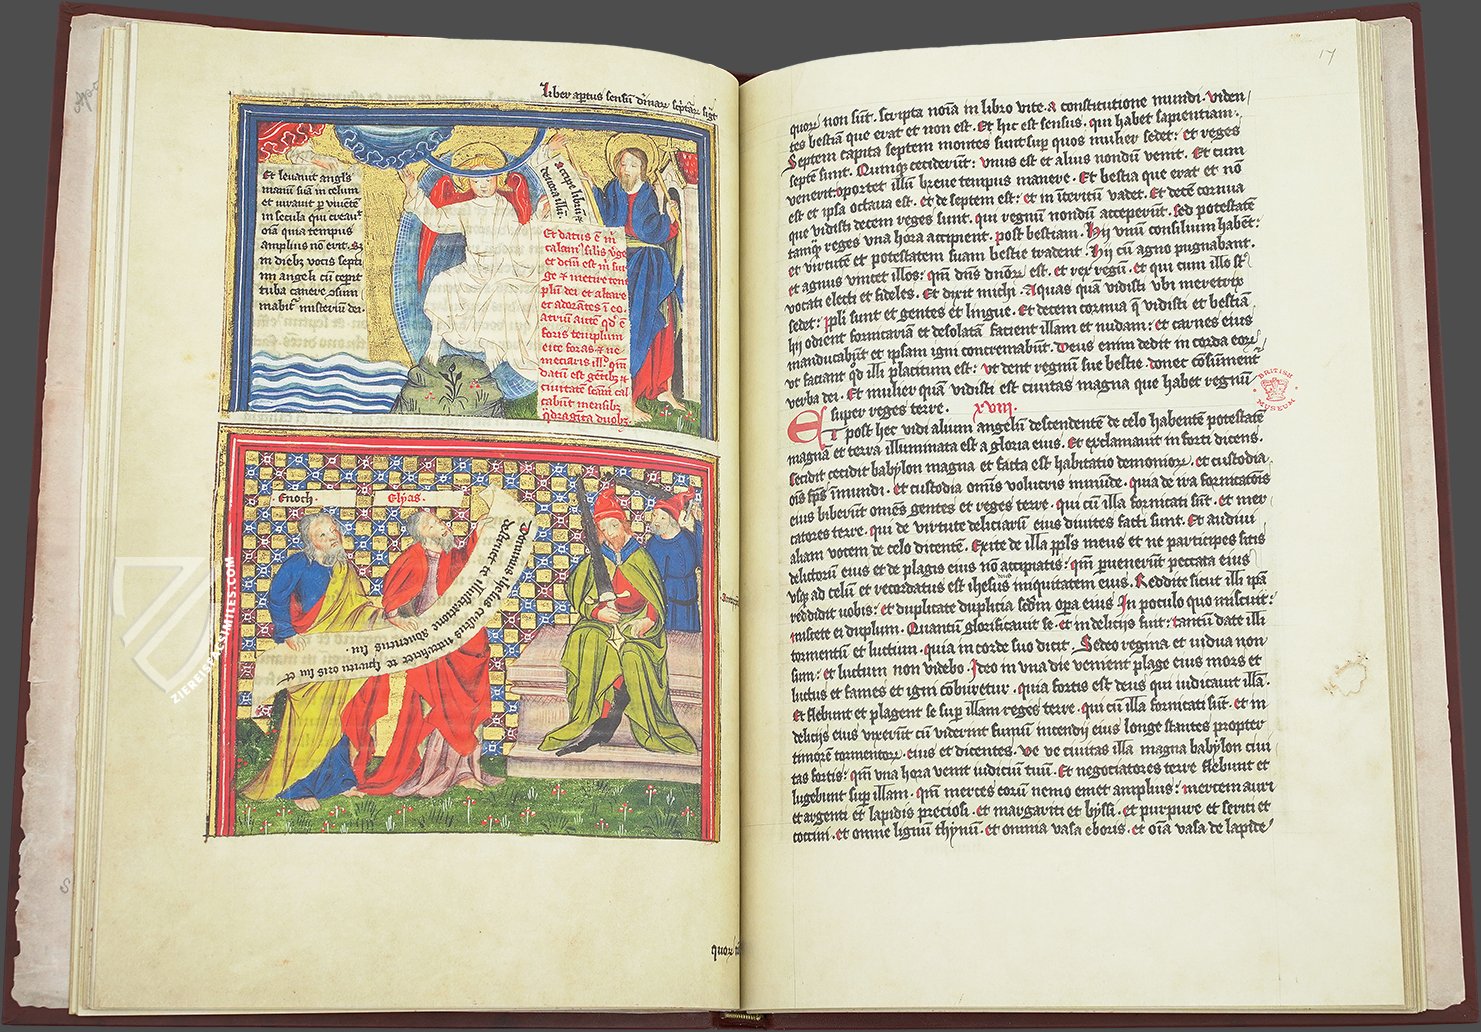 Liber aptus sensu
Et levavit angls
manu sua in celum
et iuravit p viuete
in secula qui creavt
oia quia tempus
amplius no erit. Si
in dieb vocis septi
mi angeli cu cepit
tuba canere
misteriu dei.
Accipe libru
devora illu.
Et datus e m
calam silis vge
et dcm est m sur
ge et metire tem
plu dei et altare
et adorates i eo.
atriu aute qd e
foris templum
eice foras et ne
meciaris ill qm
datu est getib et
civitate scam cal
cabut mensib
qdragita duob.
Enoch.
Elyas.
Dominus ihesus cristus interficiet te spiritu oris sui et
destruet te illustratione adventus sui.
ZIEREIS FACSIMILES.COM
quor
17
quor non sut. scripta noia in libro vite. a constitutione mundi. viden
tes bestia que erat et non est. Et hic est sensus. qui habet sapientiam.
Septem capita septem montes sunt sup quos mulier sedet: et reges
septe sunt. Quinq ceciderut: unus est et alius nondu venit. Et cum
venerit oportet illu breve tempus manere. Et bestia que erat et no
est et ipsa octava est. et de septem est: et in iteritu vadet. Et dece cornua
que vidisti decem reges sunt. qui regnu nondu acceperut. sed potestate
tamq reges vna hora accipient. post bestiam. Hii vnu consilium habet:
et virtute et potestatem suam bestie tradent. Hii cu agno pugnabant.
et agnus vincet illos: qm dns dnor est. et rex regu. et qui cum illo st
vocati electi et fideles. Et dixit michi. Aquas qua vidisti vbi meretrix
sedet: ppli sunt et gentes et lingue. Et decem cornua q vidisti et bestia
hii odient fornicaria et desolata facient illam et nudam: et carnes eius
manducabut et ipsam igni concremabunt. Deus enim dedit in corda eor
vt faciant qd illi placitum est: vt dent regnu sue bestie. donec cosument
verba dei. Et mulier qua vidisti est civitas magna que habet regnu
super reges terre. xviii.
Et post hec vidi alium angelu descendente de celo habente potestate
magna et terra illuminata est a gloria eius. Et exclamavit in forti dicens.
Cecidit cecidit babylon magna et facta est habitatio demonior. et custodia
ois sps inmundi. et custodia omis volucris inmude. quia de ira fornicatois
eius biberut omes gentes et reges terre. qui cu illa fornicati sut. et mer
catores terre. qui de virtute deliciaru eius divites facti sunt. Et audivi
aliam vocem de celo dicente. Exite de illa ppls meus et ne participes sitis
delictoru eius et de plagis eius no accipiatis: qm pervenerut peccata eius
vsq ad celu et recordatus est ihesus iniquitatem eius. Reddite sicut illi ipa
reddidit vobis: et duplicate duplicia sedm opa eius In poculo quo miscuit:
miscete ei duplum. Quantu glorificavit se. et in deliciis fuit: tantu date illi
tormentu et luctum. quia in corde suo dicit. Sedeo regina et vidua non
sum: et luctum non videbo. Ideo in vna die venient plage eius mors et
luctus et fames et igni coburetur. quia fortis est deus qui iudicavit illa.
Et flebunt et plagent se sup illam reges terre. qui cu illa fornicati sut. et in
deliciis vixerut cu viderint fumu incendii eius longe stantes propter
timore tormentor. eius et dicentes. Ve ve civitas illa magna babylon civi
tas fortis: qm vna hora venit iudiciu tuu. Et negociatores terre flebunt et
lugebunt sup illam. qm merces eoru nemo emet amplius: mercem auri
et argenti et lapidis preciosi. et margariti et byssi. et purpure et serici et
coccini. et omne lignu thynu. et omnia vasa eboris. et oia vasa de lapide
BRITISH
MUSEUM